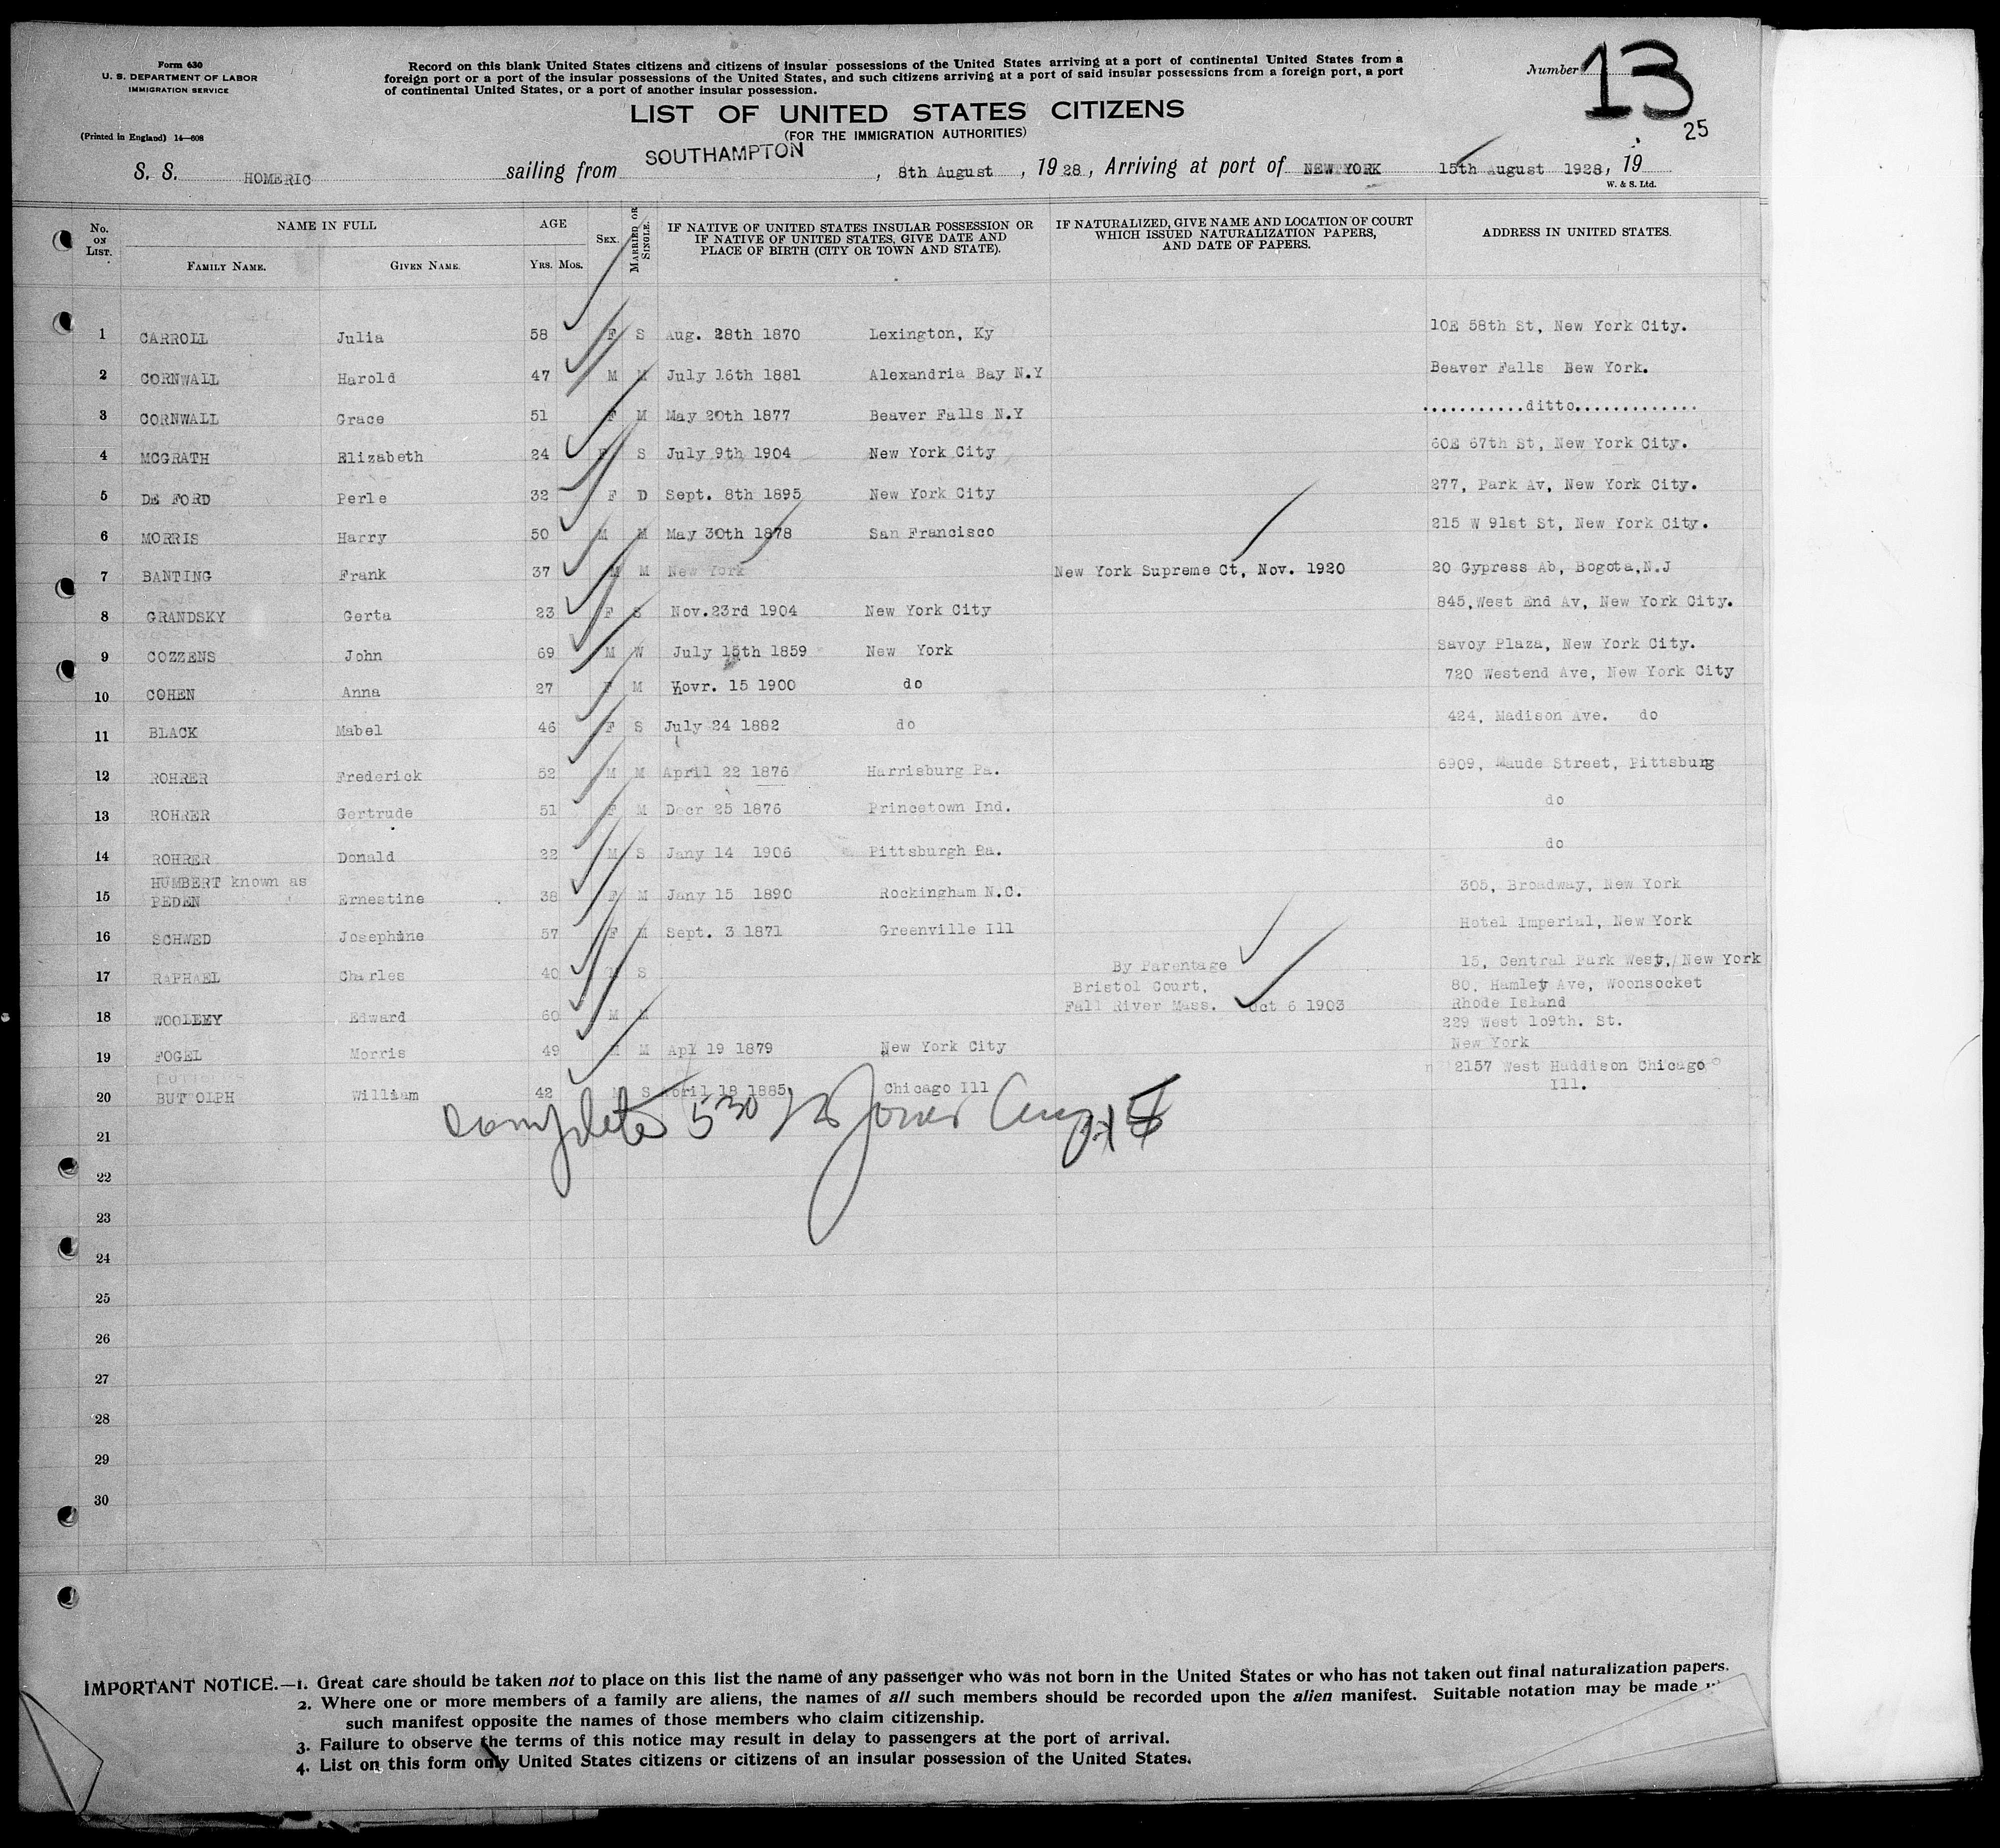 Form 630
U. S. DEPARTMENT OF LABOR
IMMIGRATION SERVICE
(Printed in England) 14—608
Record on this blank United States citizens and citizens of insular possessions of the United States arriving at a port of continental United States from a
foreign port or a port of the insular possessions of the United States, and such citizens arriving at a port of said insular possessions from a foreign port, a port
of continental United States, or a port of another insular possession.
Number 13
25
LIST OF UNITED STATES CITIZENS
(FOR THE IMMIGRATION AUTHORITIES)
S. S. HOMERIC sailing from SOUTHAMPTON, 8th August, 1928, Arriving at port of NEW YORK 15th August 1928, 19
W. & S. Ltd.
No. ON LIST. NAME IN FULL FAMILY NAME. GIVEN NAME. AGE YRS. MOS. SEX. MARRIED OR SINGLE. IF NATIVE OF UNITED STATES INSULAR POSSESSION OR IF NATIVE OF UNITED STATES, GIVE DATE AND PLACE OF BIRTH (CITY OR TOWN AND STATE). IF NATURALIZED, GIVE NAME AND LOCATION OF COURT WHICH ISSUED NATURALIZATION PAPERS, AND DATE OF PAPERS. ADDRESS IN UNITED STATES.
1 CARROLL Julia 58 F S Aug. 28th 1870 Lexington, Ky 10E 58th St, New York City.
2 CORNWALL Harold 47 M M July 16th 1881 Alexandria Bay N.Y Beaver Falls Bew York.
3 CORNWALL Grace 51 F M May 20th 1877 Beaver Falls N.Y ............ditto.............
4 MCGRATH Elizabeth 24 F S July 9th 1904 New York City 60E 67th St, New York City.
5 DE FORD Perle 32 F D Sept. 8th 1895 New York City 277, Park Av, New York City.
6 MORRIS Harry 50 M M May 30th 1878 San Francisco 215 W 91st St, New York City.
7 BANTING Frank 37 M M New York New York Supreme Ct, Nov. 1920 20 Cypress Ab, Bogota,N.J
8 GRANDSKY Gerta 23 F S Nov.23rd 1904 New York City 845,West End Av, New York City.
9 COZZENS John 69 M W July 15th 1859 New York Savoy Plaza, New York City.
10 COHEN Anna 27 F M Novr. 15 1900 do 720 Westend Ave, New York City
11 BLACK Mabel 46 F S July 24 1882 do 424, Madison Ave. do
12 ROHRER Frederick 52 M M April 22 1876 Harrisburg Pa. 6909, Maude Street, Pittsburg
13 ROHRER Gertrude 51 F M Decr 25 1876 Princetown Ind. do
14 ROHRER Donald 22 M S Jany 14 1906 Pittsburgh Pa. do
15 HUMBERT known as PEDEN Ernestine 38 F M Jany 15 1890 Rockingham N.C. 305, Broadway, New York
16 SCHWED Josephine 57 F M Sept. 3 1871 Greenville Ill Hotel Imperial, New York
17 RAPHAEL Charles 40 M S By Parentage 15, Central Park West, New York
18 WOOLLEY Edward 60 M M Bristol Court, Fall River Mass. Oct 6 1903 80, Hamlet Ave, Woonsocket Rhode Island
19 FOGEL Morris 49 M M Apl 19 1879 New York City 229 West 109th. St. New York
20 BUTTOLPH William 42 M S April 18 1885 Chicago Ill 2157 West Haddison Chicago Ill.
complete 5 30 Jones Aug 15
21
22
23
24
25
26
27
28
29
30
IMPORTANT NOTICE.—1. Great care should be taken not to place on this list the name of any passenger who was not born in the United States or who has not taken out final naturalization papers.
2. Where one or more members of a family are aliens, the names of all such members should be recorded upon the alien manifest. Suitable notation may be made
such manifest opposite the names of those members who claim citizenship.
3. Failure to observe the terms of this notice may result in delay to passengers at the port of arrival.
4. List on this form only United States citizens or citizens of an insular possession of the United States.